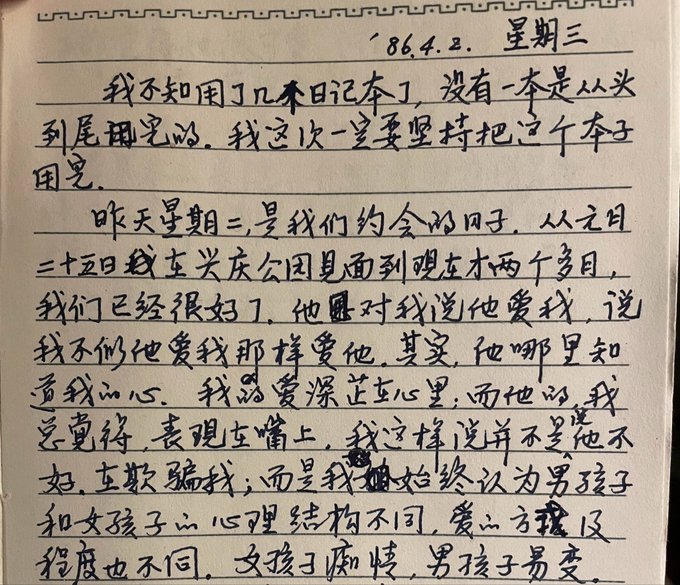 '86.4.2. 星期三
我不知用了几本日记本了，没有一本是从头
到尾用完的。我这次一定要坚持把这个本子
用完。
昨天星期二，是我们约会的日子。从元月
二十五日我在兴庆公园见面到现在才两个多月，
我们已经很好了。他对我说他爱我，说
我不似他爱我那样爱他。其实，他哪里知
道我的心。我的爱深芷在心里；而他的，我
总觉得，表现在嘴上，我这样说并不是说他不
好，在欺骗我；而是我始终认为男孩子
和女孩子的心理结构不同，爱的方式及
程度也不同。女孩子痴情，男孩子易变。